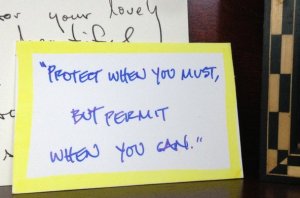 for your lovely
beautiful
"PROTECT WHEN YOU MUST,
BUT PERMIT
WHEN YOU CAN."